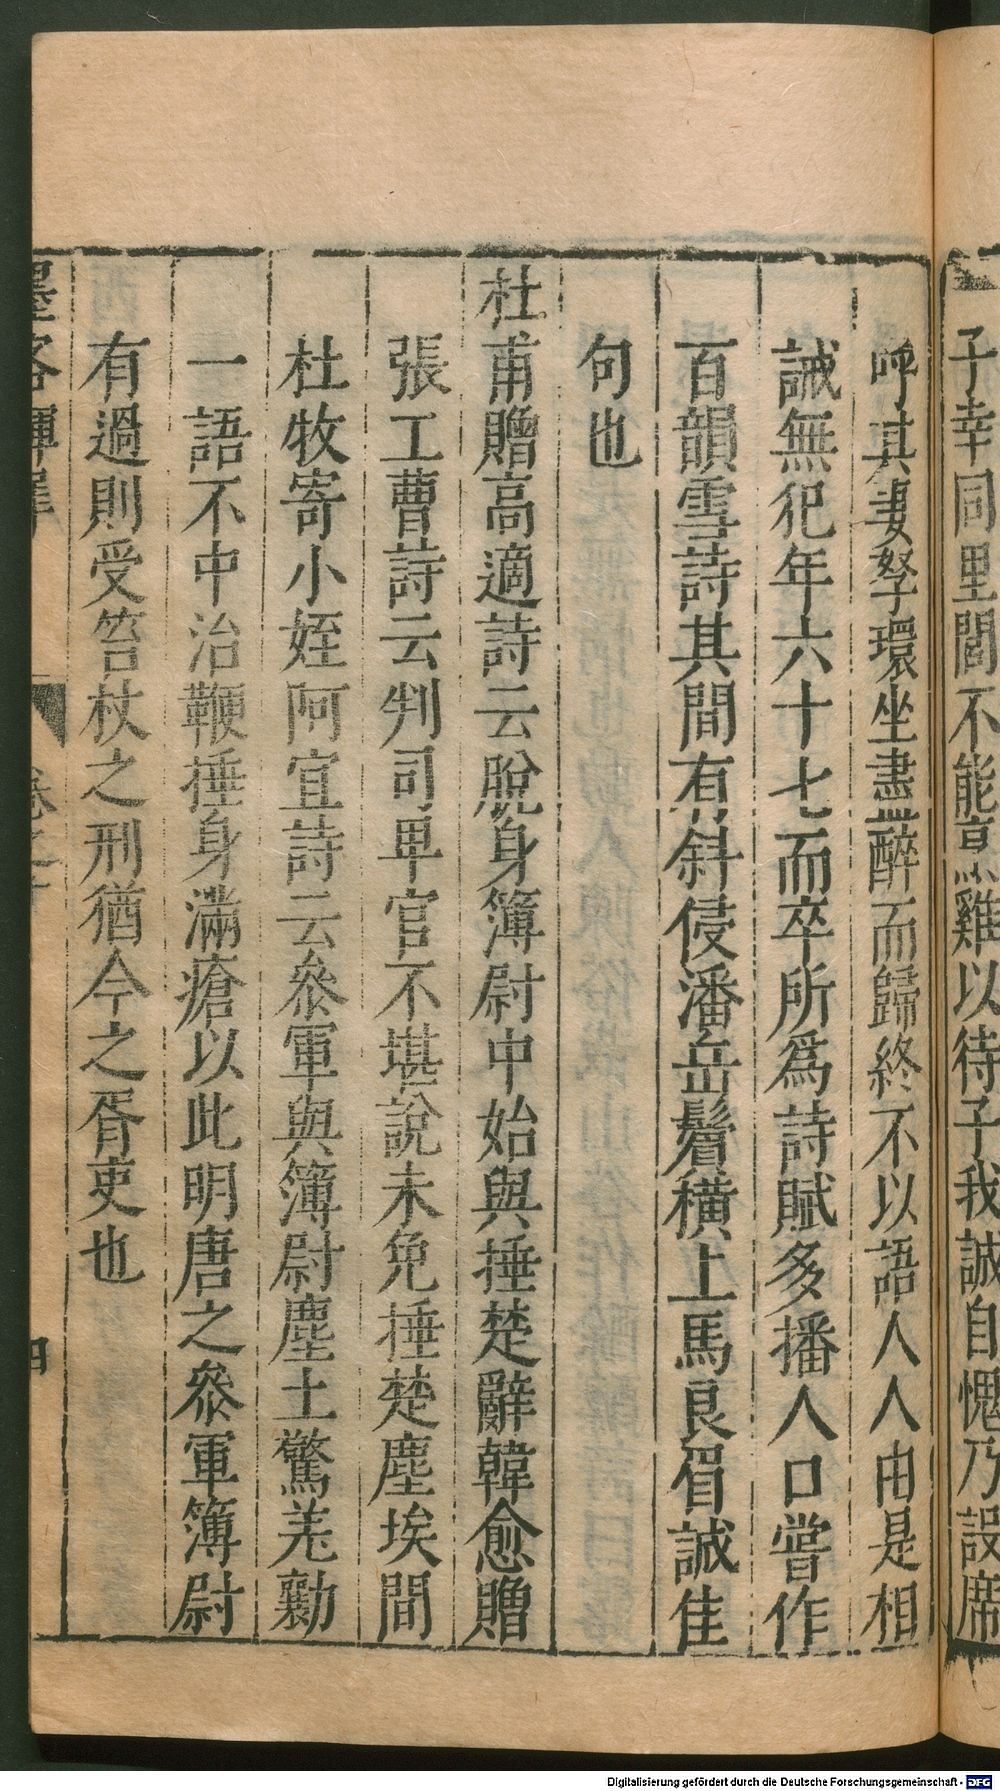 子幸同里閈不能烹雞以待子我誠自愧乃設席
呼其妻孥環坐盡醉而歸終不以語人人由是相
誡無犯年六十七而卒所爲詩賦多播人口嘗作
百韻雪詩其間有斜侵潘岳鬢橫上馬良眉誠佳
句也
杜甫贈高適詩云脫身簿尉中始與捶楚辭韓愈贈
張工曹詩云判司卑官不堪說未免捶楚塵埃間
杜牧寄小姪阿宜詩云參軍與簿尉塵土驚羌勷
一語不中治鞭捶身滿瘡以此明唐之參軍簿尉
有過則受笞杖之刑猶今之胥吏也
墨客揮犀 卷之 四
Digitalisierung gefördert durch die Deutsche Forschungsgemeinschaft - DFG